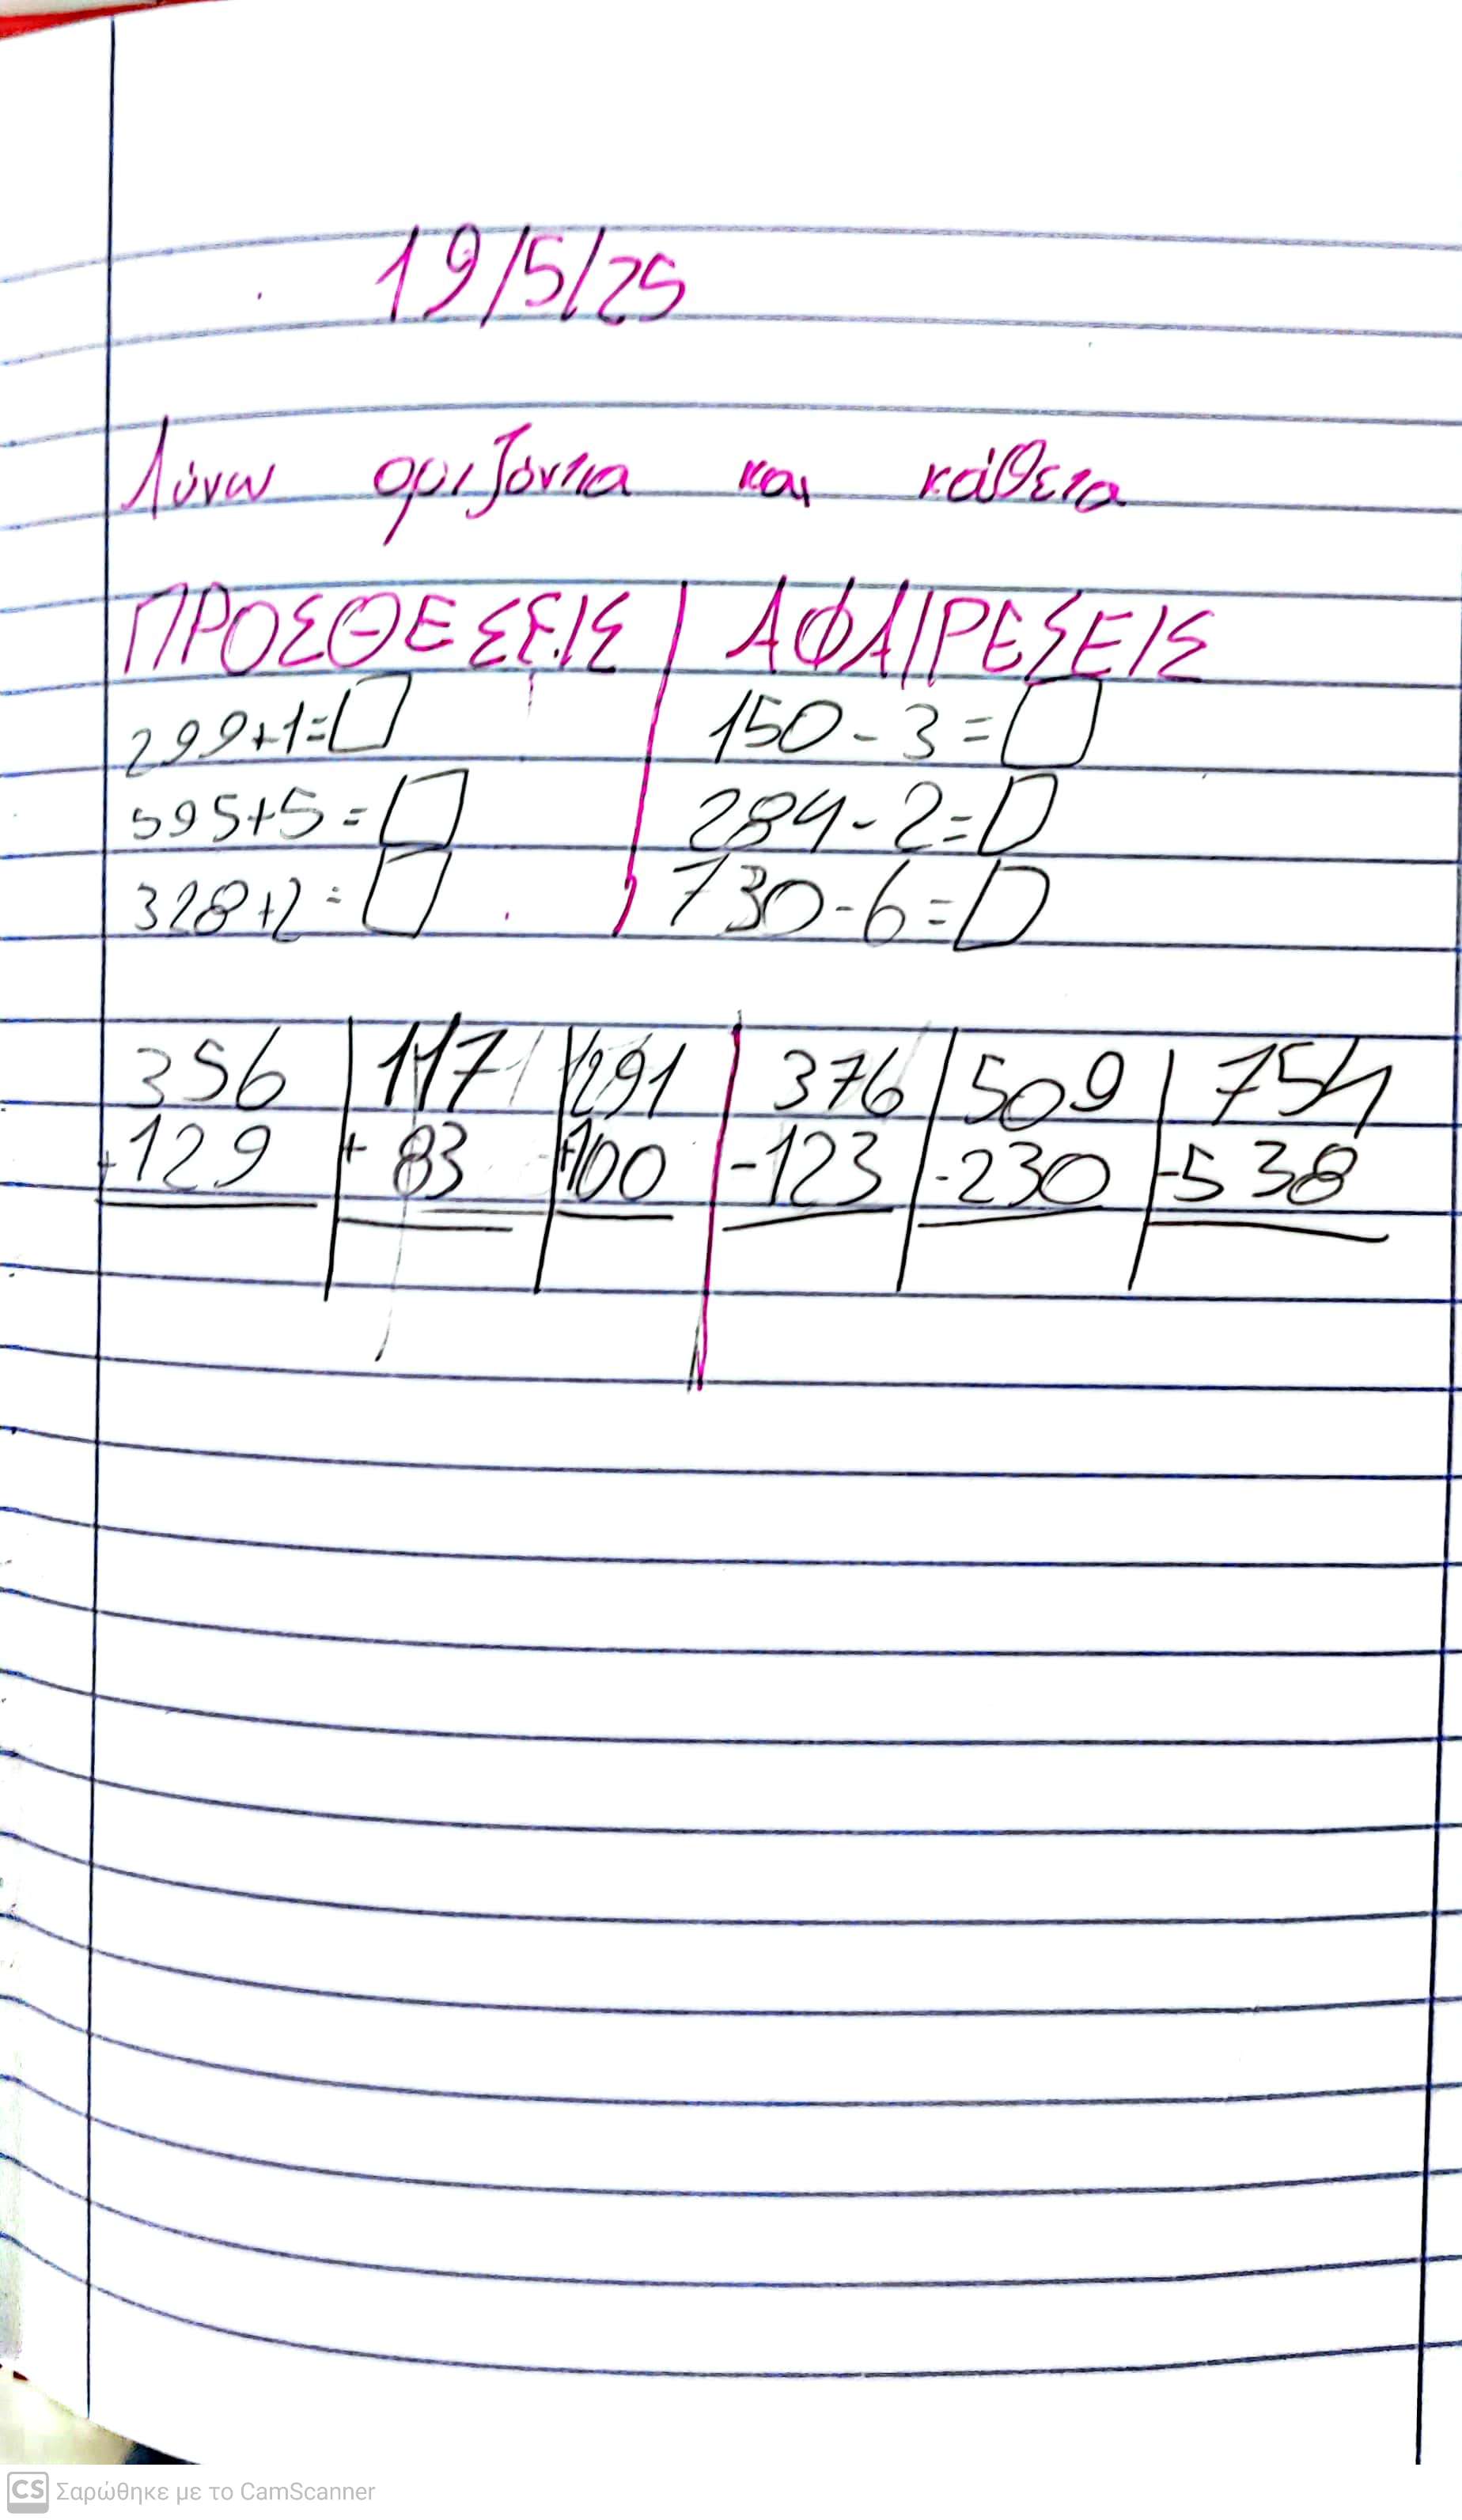 19/5/25
Λύνω οριζόντια και κάθετα
ΠΡΟΣΘΕΣΕΙΣ | ΑΦΑΙΡΕΣΕΙΣ
299+1=□ 150-3=□
595+5=□ 284-2=□
328+2=□ 730-6=□
356 | 117 | 291 | 376 | 509 | 754
+129 | + 83 | +100 | -123 | -230 | -538
CS Σαρώθηκε με το CamScanner